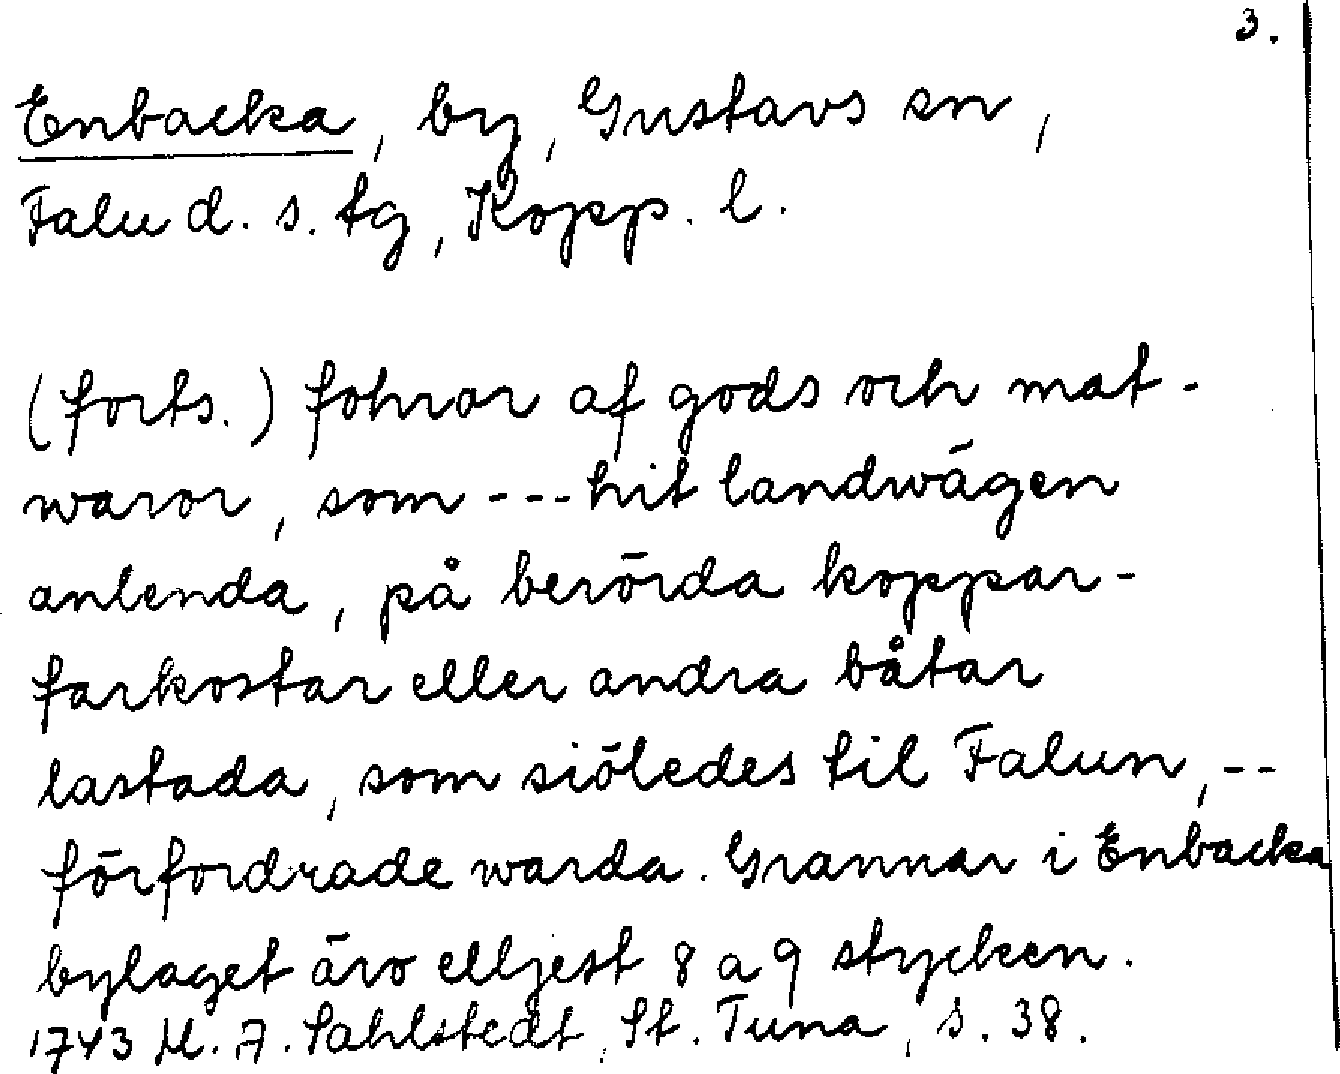 3.
Enbacka, by, Gustavs sn,
Falu d. s. tg, Kopp. l.
(forts.) fohror af gods och mat-
waror, som --- hit landwägen
anlenda, på berörda koppar-
farkostar eller andra båtar
lastada, som siöledes til Falun, --
förfordrade warda. Grannar i Enbacka
bylaget äro elljest 8 a 9 stycken.
1743 M. A. Sahlstedt, St. Tuna, s. 38.